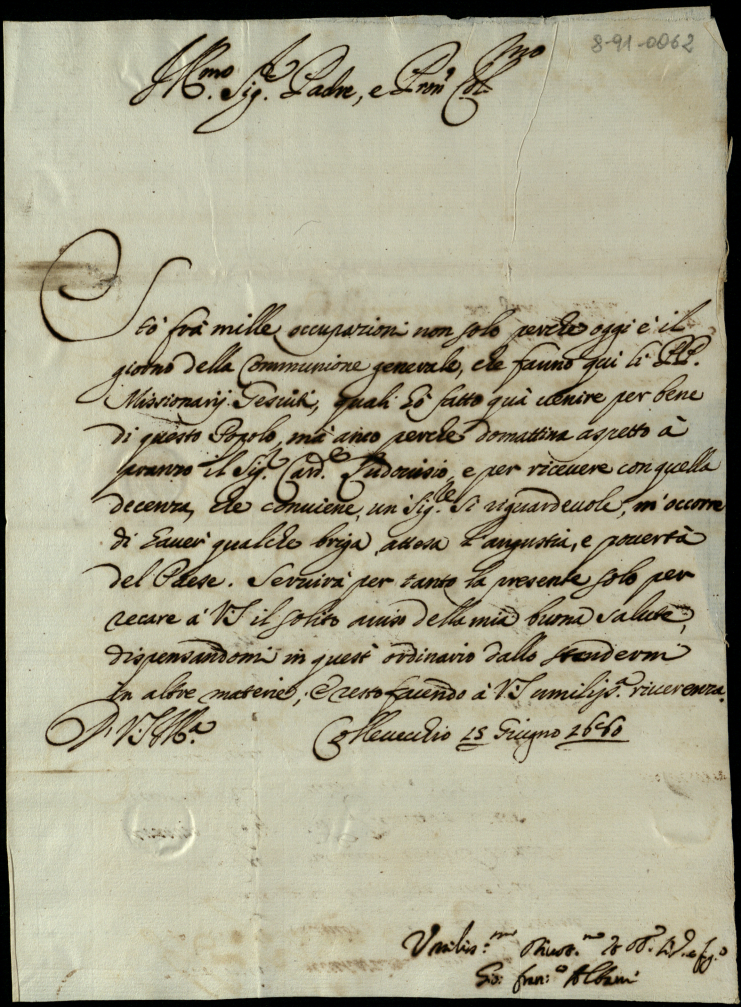 8-91-0062
Ill.mo Sig.re Padre, e Pron.e Col.mo
Stò frà mille occupazioni non solo perche oggi è il
giorno della Communione generale, che fanno qui li PP.
Missionarij Gesuiti, quali hò fatto quà venire per bene
di questo Popolo, mà anco perche domattina aspetto à
pranzo il Sig.r Card.le Ludovisio, e per ricevere con quella
decenza, che conviene, un Sig.re sì riguardevole, m'occorre
di haver qualche briga, attesa l'angustia, e povertà
del Paese. Servirà per tanto la presente solo per
recare à VS il solito aviso della mia buona salute,
dispensandomi in quest'ordinario dallo stendermi
in altre materie; e resto facendo à VS umilijs.a riverenza.
Di VS Ill.ma Collevecchio 15 Giugno 1660
Umilis.mo Devot.mo et Ob.
Gio: Fran.co Albani